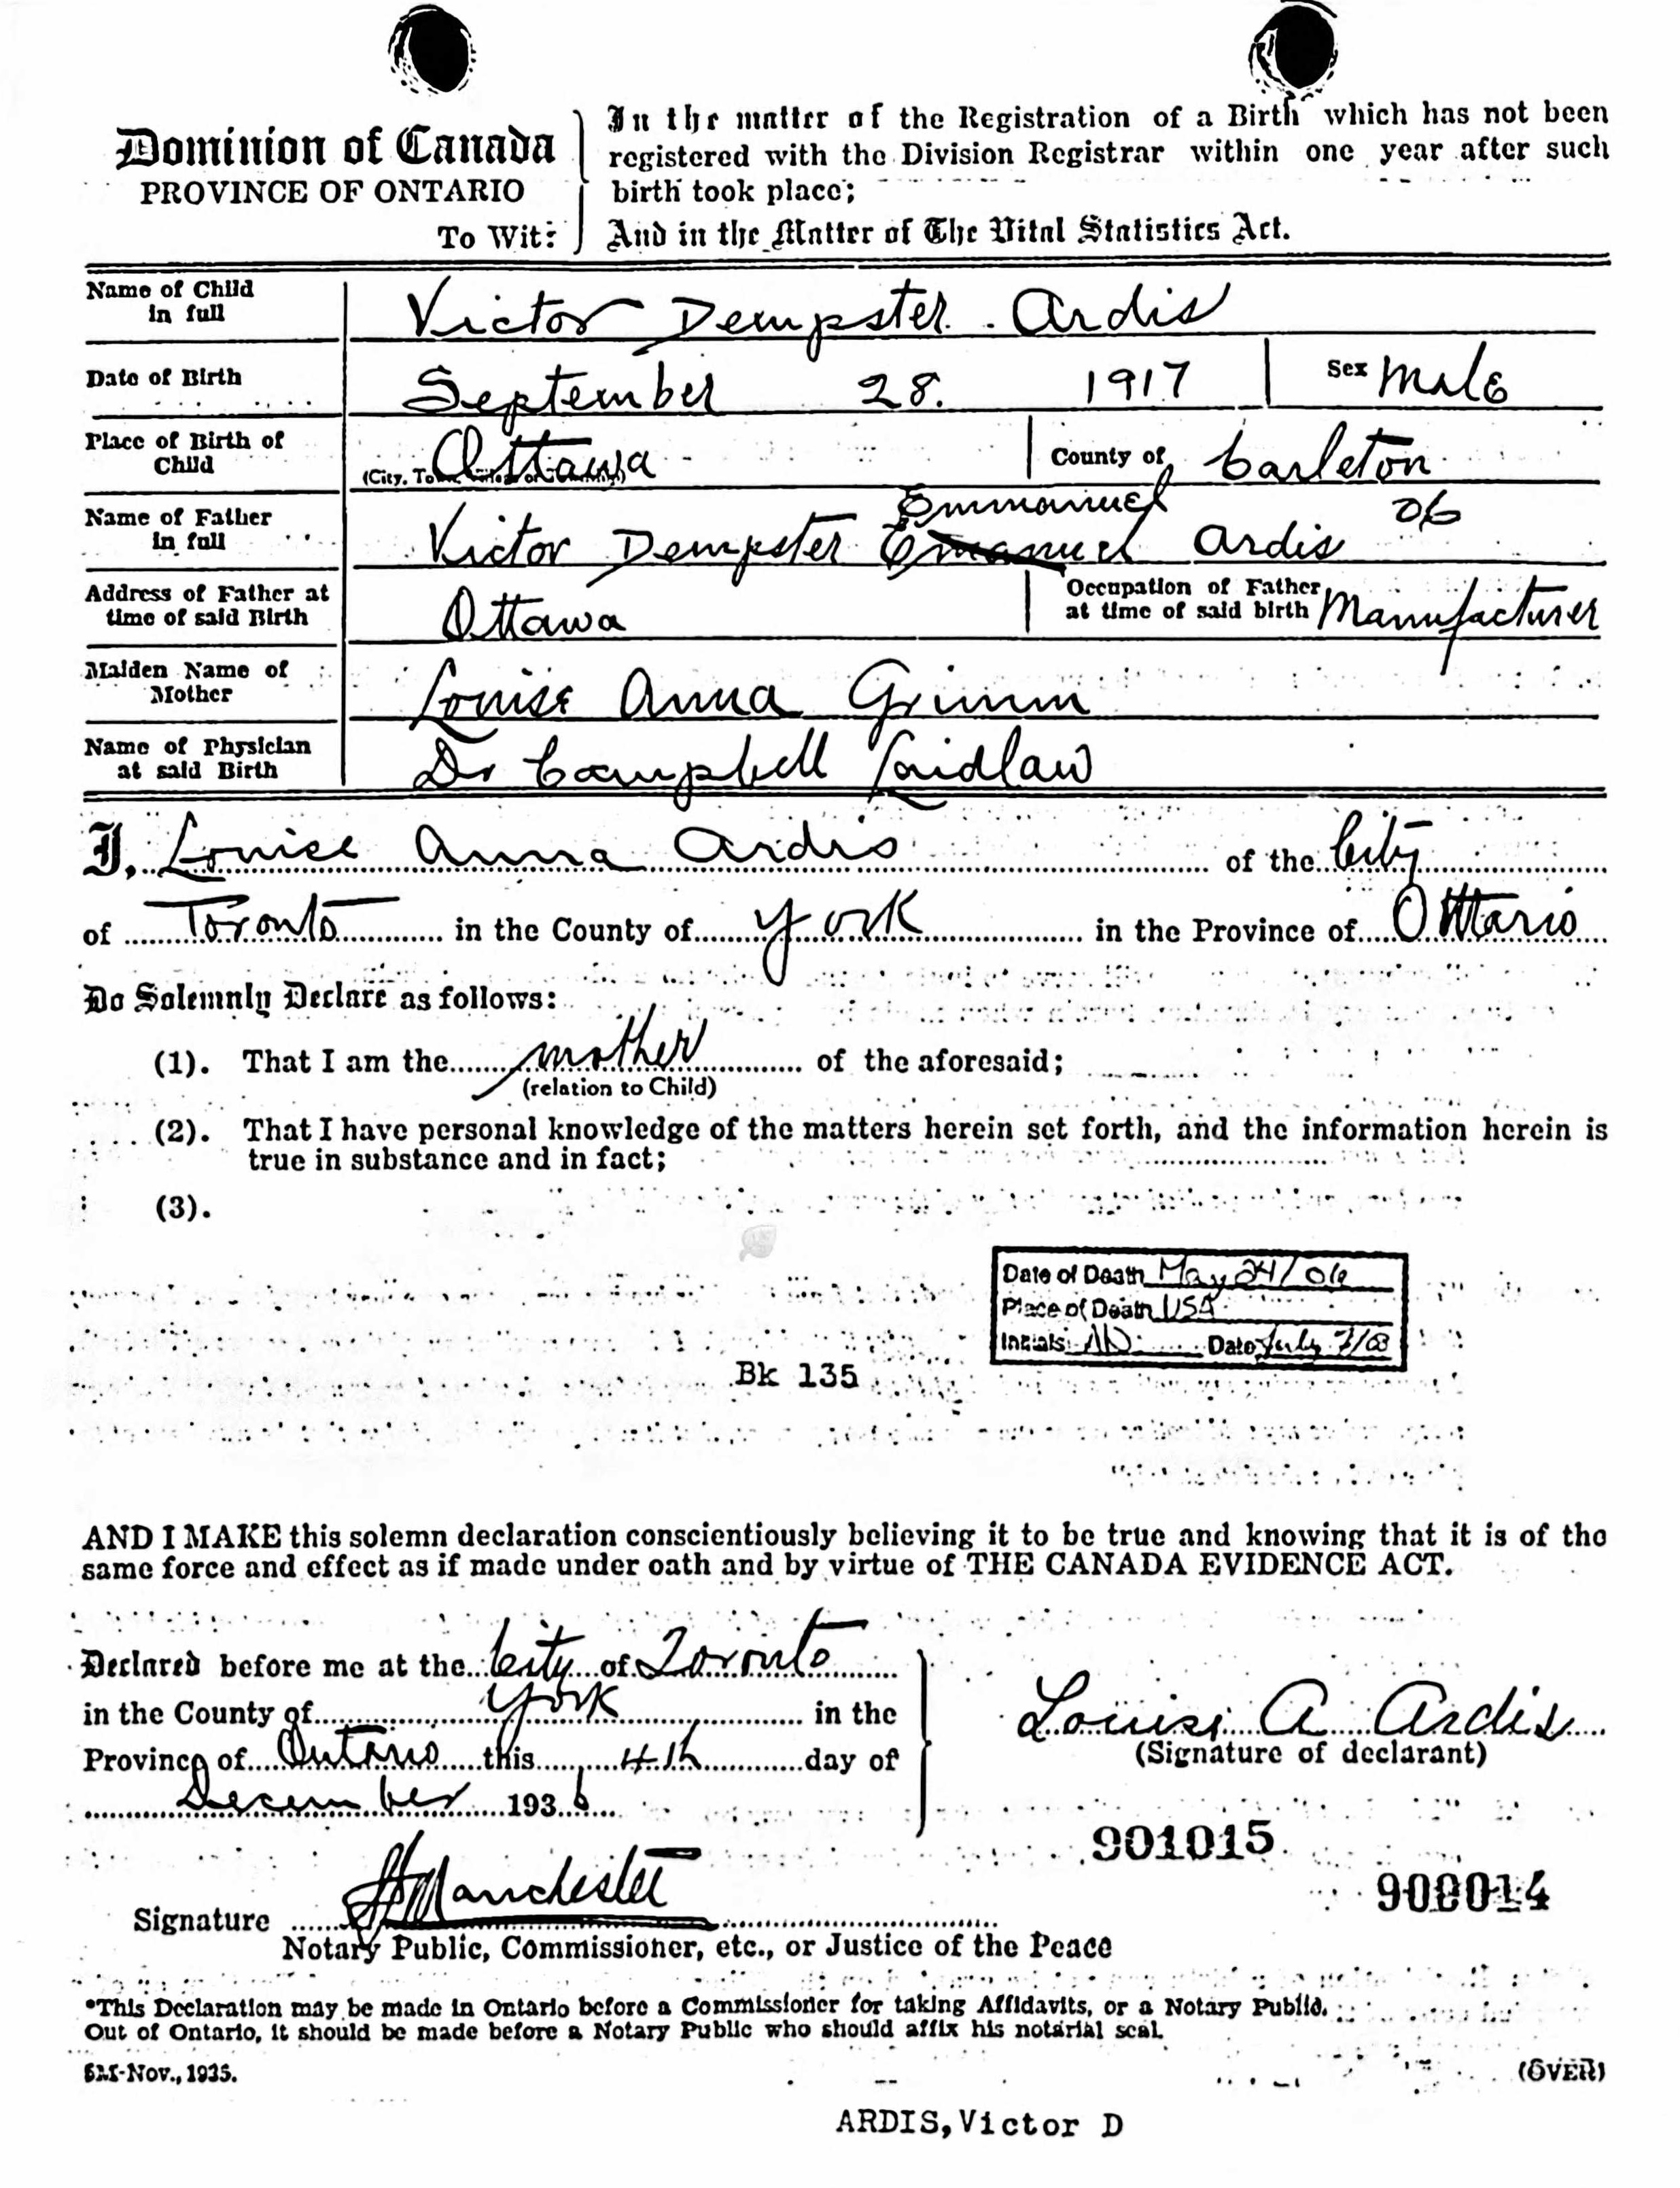 Dominion of Canada
PROVINCE OF ONTARIO
To Wit:
In the matter of the Registration of a Birth which has not been
registered with the Division Registrar within one year after such
birth took place;
And in the Matter of The Vital Statistics Act.
Name of Child in full Victor Dempster Ardis
Date of Birth September 28. 1917 Sex Male
Place of Birth of Child Ottawa County of Carleton
Emmanuel 06
Name of Father in full Victor Dempster Emanuel Ardis
Address of Father at time of said Birth Ottawa Occupation of Father at time of said birth Manufacturer
Maiden Name of Mother Louise Anna Grimm
Name of Physician at said Birth Dr Campbell Laidlaw
I, Louise Anna Ardis of the City
of Toronto in the County of York in the Province of Ontario
Do Solemnly Declare as follows:
(1). That I am the mother of the aforesaid;
(relation to Child)
(2). That I have personal knowledge of the matters herein set forth, and the information herein is
true in substance and in fact;
(3).
Date of Death May 24/06
Place of Death USA
Initials Date July 7/08
Bk 135
AND I MAKE this solemn declaration conscientiously believing it to be true and knowing that it is of the
same force and effect as if made under oath and by virtue of THE CANADA EVIDENCE ACT.
Declared before me at the City of Toronto
in the County of York in the
Province of Ontario this 4th day of
December 1936
Louise A Ardis
(Signature of declarant)
901015
Signature Manchester
Notary Public, Commissioner, etc., or Justice of the Peace
*This Declaration may be made in Ontario before a Commissioner for taking Affidavits, or a Notary Public.
Out of Ontario, it should be made before a Notary Public who should affix his notarial seal.
5M-Nov., 1935.
(OVER)
ARDIS,Victor D